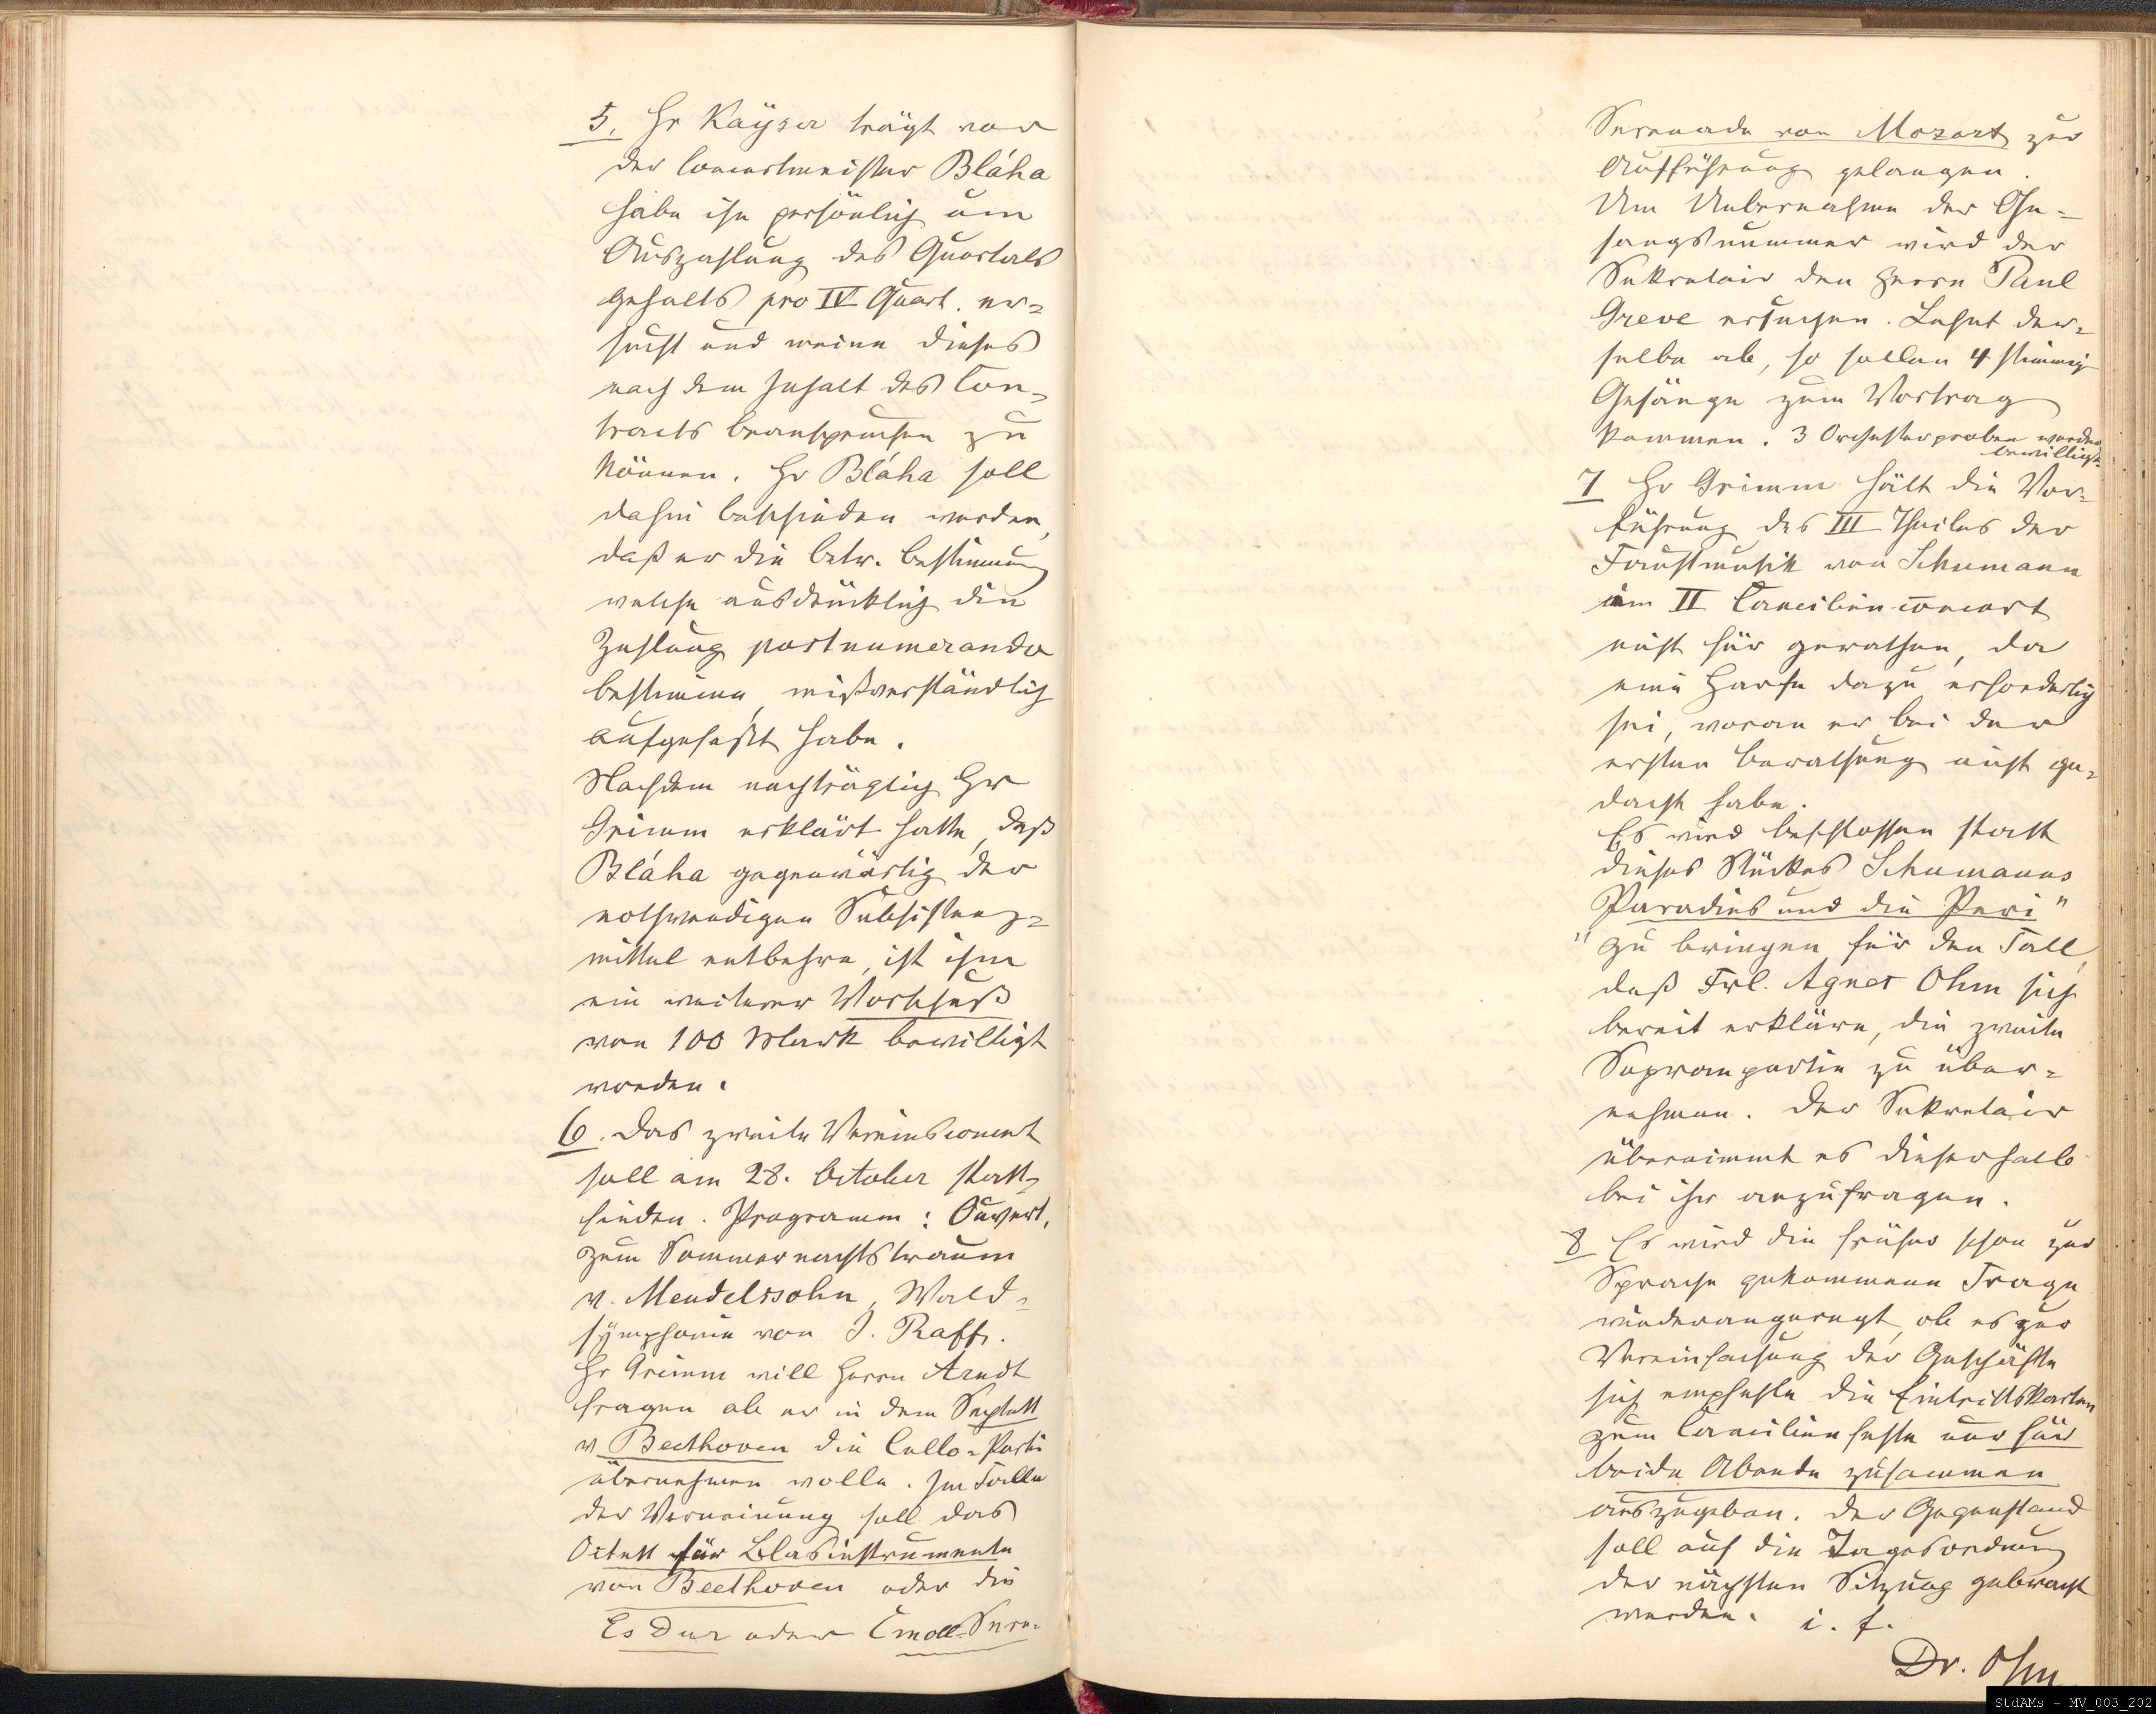 5. Hr Kayser trägt vor
der Concertmeister Bláha
habe ihn persönlich um
Auszahlung des Quartals
gehalts pro IV Quart. er-
sucht und meine dieses
nach dem Inhalt des Con-
tracts beanspruchen zu
können. Hr Bláha soll
dahin beschieden werden,
daß er die betr. Bestimmung
welche ausdrücklich die
Zahlung postnumerando
bestimme, mißverständlich
aufgefaßt habe.
Nachdem nachträglich Hr
Grimm erklärt hatte, daß
Bláha gegenwärtig der
nothwendigen Subsistenz-
mittel entbehre, ist ihm
ein weiterer Vorschuß
von 100 Mark bewilligt
worden.
6. Das zweite Vereinsconcert
soll am 28. October statt-
finden. Programm: Ouvert.
zum Sommernachtstraum
v. Mendelssohn, Wald-
symphonie von J. Raff.
Hr Grimm will Herrn Arndt
fragen ob er in dem Septett
v Beethoven die Cello-Parti
übernehmen wolle. Im Falle
der Verneinung soll das
Octett für Blasinstrumente
von Beethoven oder die
Es Dur oder Cmoll-Sere-
Serenade von Mozart zur
Aufführung gelangen.
Um Uebernahme der Ge-
sangsnummer wird der
Sekretair den Herrn Paul
Greve ersuchen. Lehnt der-
selbe ab, so sollen 4 stimmig
Gesänge zum Vortrag
kommen. 3 Orchesterproben werden
bewilligt.
7 Hr Grimm hält die Vor-
führung des III Theiles der
Faustmusik von Schumann
im II Caecilienconcert
nicht für gerathen, da
eine Harfe dazu erforderlich
sei, woran er bei der
ersten Berathung nicht ge-
dacht habe.
Es wird beschlossen statt
dieses Stückes Schumanns
Paradies und die Peri"
" zu bringen für den Fall,
daß Frl. Agnes Ohm sich
bereit erkläre, die zweite
Sopranpartie zu über-
nehmen. Der Sekretair
übernimmt es dieserhalb
bei ihr anzufragen.
8 Es wird die früher schon zur
Sprache gekommene Frage
wiederangeregt, ob es zur
Vereinfachung der Geschäfte
sich empfehle die Eintrittskarten
zum Caecilienfeste nur für
beide Abende zusammen
auszugeben. Der Gegenstand
soll auf die Tagesordnung
der nächsten Sitzung gebracht
werden. i. f.
Dr. Ohm
StdAMs - MV_003_202